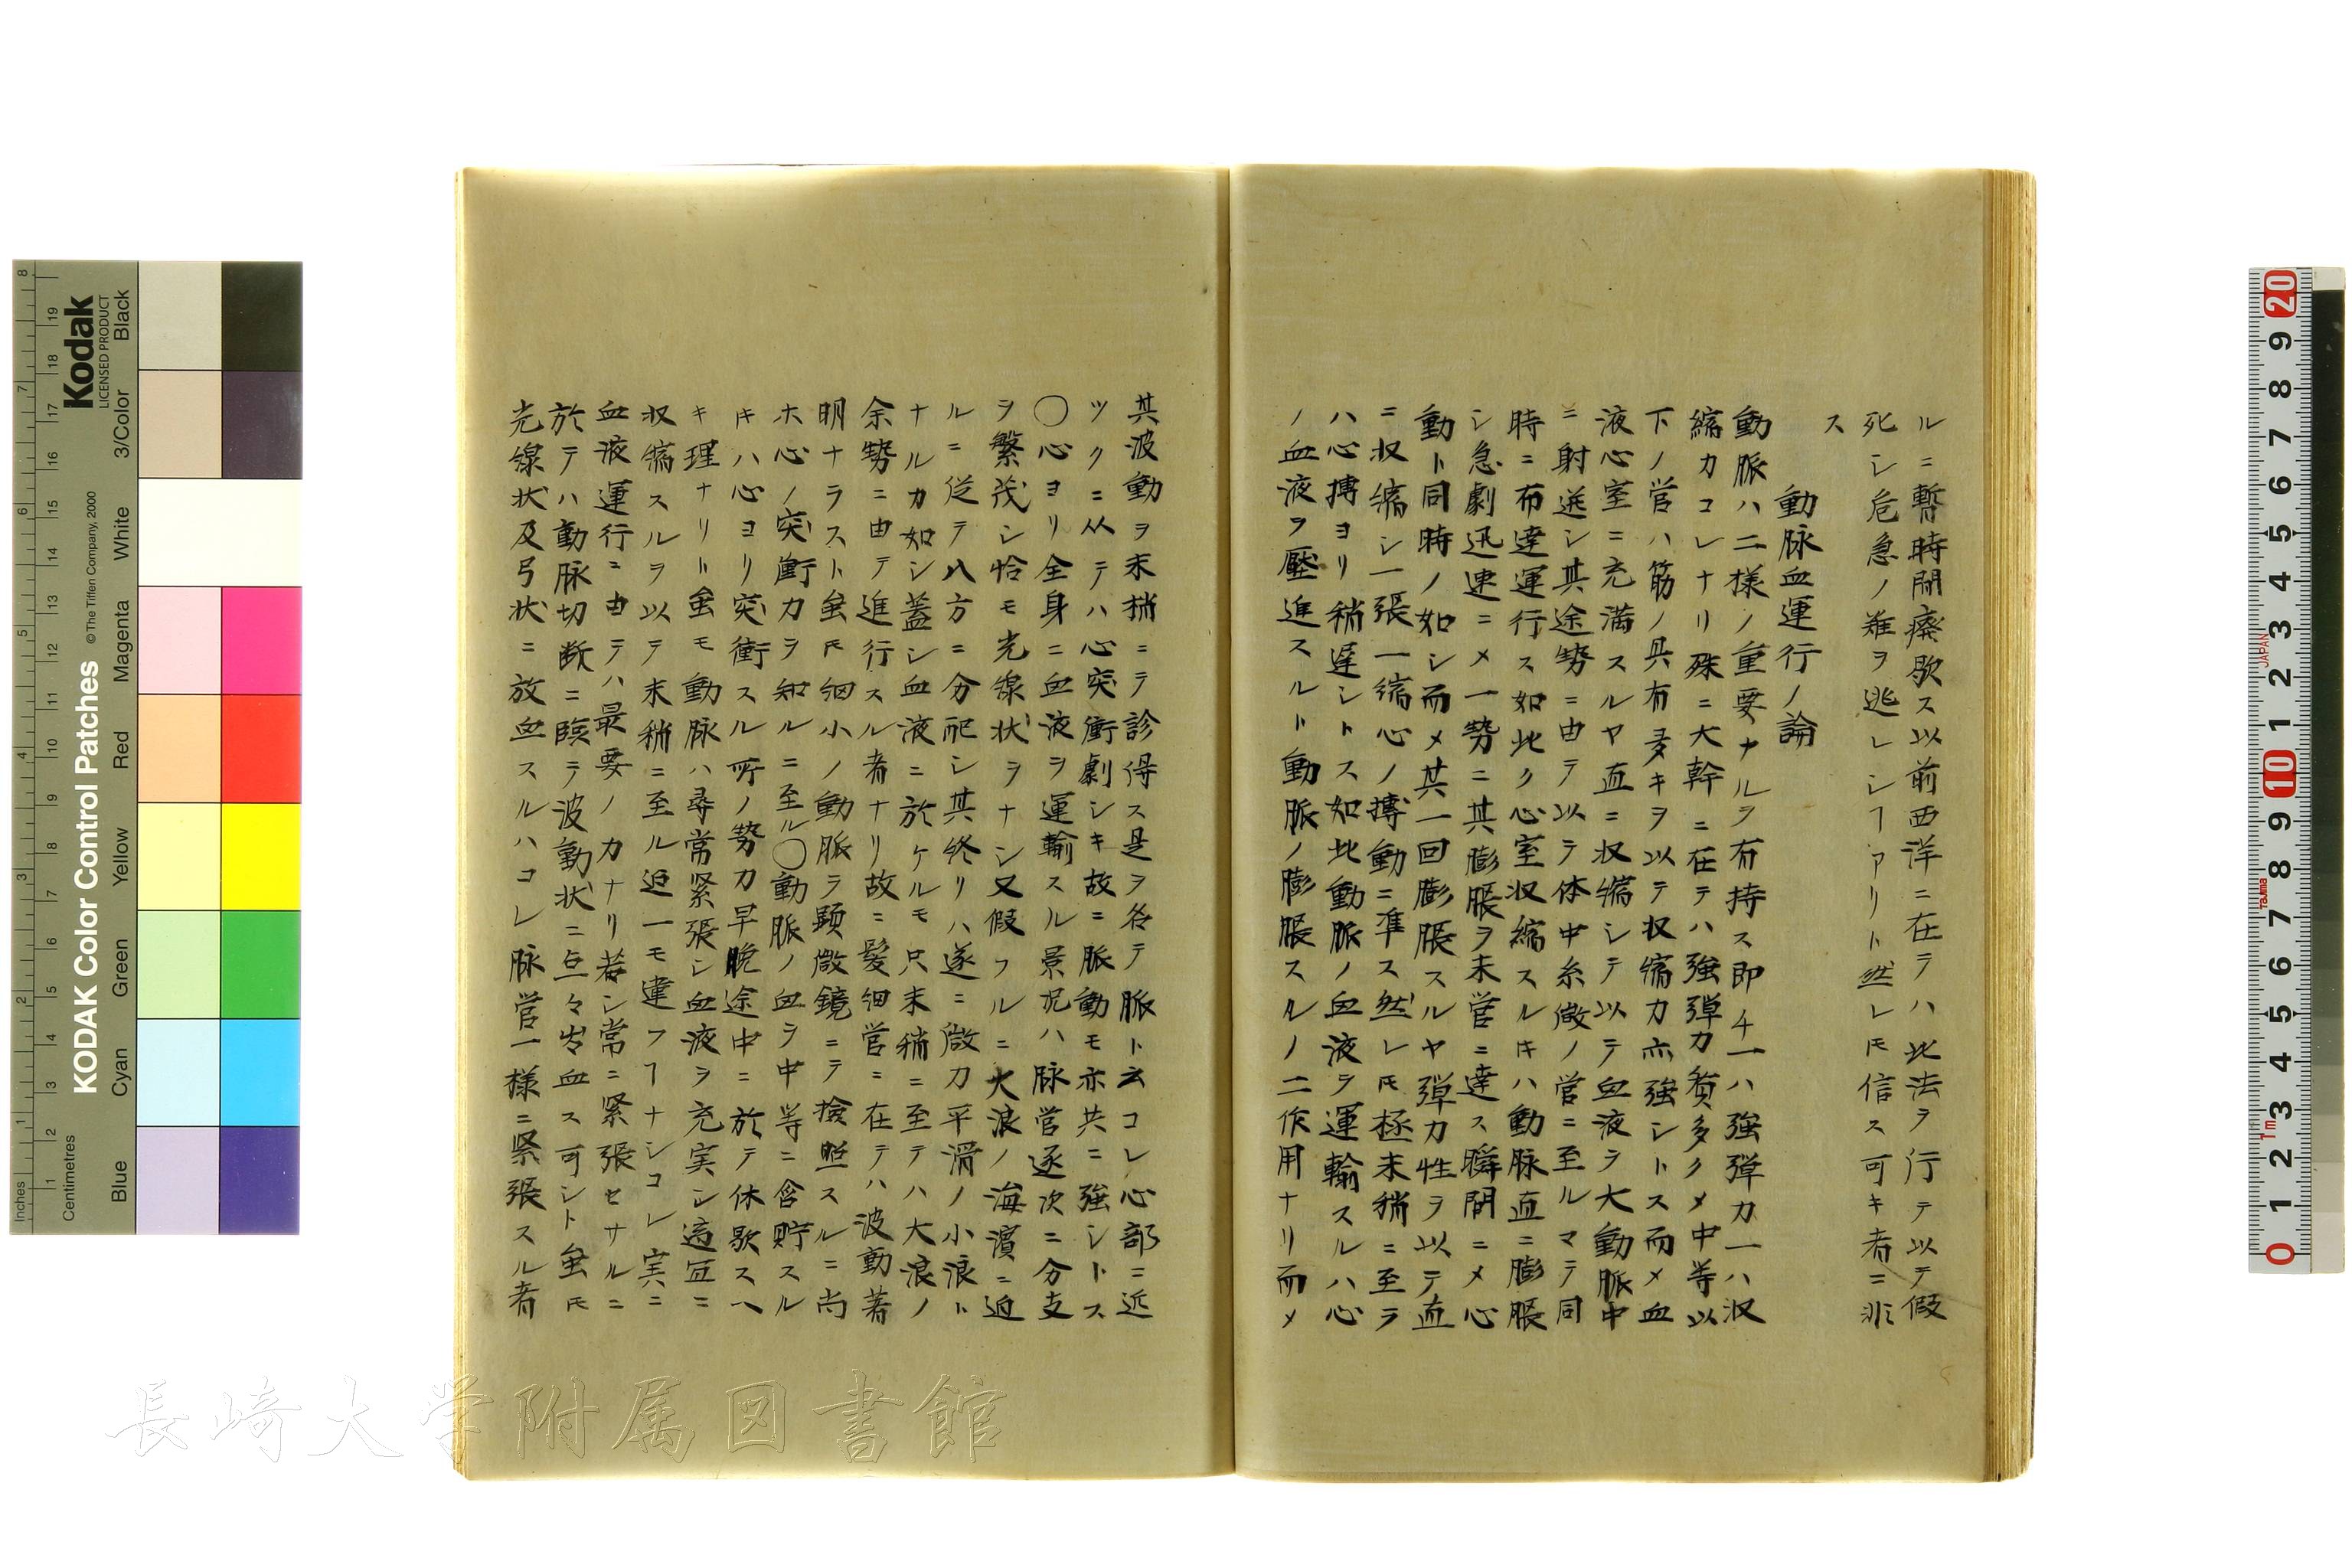 ルニ暫時間療歇ス以前西洋ニ在テハ此法ヲ行テ以テ假
死シ危急ノ難ヲ逃レシヿアリト然レ𪜈信ス可キ者ニ非
ス
動脈血運行ノ論
動脈ハ二様ノ重要ナルヲ有持ス即チ一ハ強弾力一ハ収
縮カコレナリ殊ニ大幹ニ在テハ強弾力質多クメ中等以
下ノ営ハ筋ノ具有多キヲ以テ収縮力亦強シトス而メ血
液心室ニ充満スルヤ直ニ収縮シテ以テ血液ヲ大動脈中
ニ射送シ其途勢ニ由テ以テ体中糸微ノ営ニ至ルマテ同
時ニ布達運行ス如此ク心室収縮スルキハ動脉直ニ膨脹
シ急劇迅速ニメ一勢ニ其膨脹ヲ末営ニ達ス瞬間ニメ心
動ト同時ノ如シ而メ其一回膨脹スルヤ弾力性ヲ以テ直
ニ収縮シ一張一縮心ノ搏動ニ準ス然レ𪜈極末稍ニ至テ
ハ心搏ヨリ稍遅シトス如此動脈ノ血液ヲ運輸スルハ心
ノ血液ヲ壓進スルト動脈ノ膨脹スルノ二作用ナリ而メ
其波動ヲ末梢ニテ診得ス是ヲ名テ脈ト云コレ心部ニ近
ツクニ从テハ心突衝劇シキ故ニ脈動モ亦共ニ強シトス
〇心ヨリ全身ニ血液ヲ運輸スル景況ハ脉営逐次ニ分支
ヲ繁茂シ恰モ光線状ヲナシ又假フルニ大浪ノ海濵ニ迫
ルニ従テ八方ニ分配シ其終リハ遂ニ微力平滑ノ小浪ト
ナルカ如シ蓋シ血液ニ於ケルモ只末稍ニ至テハ大浪ノ
余勢ニ由テ進行スル者ナリ故ニ髪細営ニ在テハ波動著
明ナラスト虽𪜈細小ノ動脈ヲ顕微鏡ニテ撿照スルニ尚
ホ心ノ突衝力ヲ知ルニ至ル〇動脈ノ血ヲ中等ニ含貯スル
キハ心ヨリ突衝スル所ノ勢力早晩途中ニ於テ休歇スヘ
キ理ナリト虽モ動脉ハ尋常緊張シ血液ヲ充実シ適宜ニ
収縮スルヲ以テ末稍ニ至ル迠一モ違フヿナシコレ実ニ
血液運行ニ由テハ最要ノカナリ若シ常ニ緊張セサルニ
於テハ動脉切断ニ臨テ波動状ニ亘々出血ス可シト虽𪜈
光線状及弓状ニ放血スルハコレ脉営一様ニ緊張スル者
長崎大学附属図書館
Kodak
LICENSED PRODUCT
KODAK Color Control Patches
© The Tiffen Company, 2000
Inches
Centimetres
Blue
Cyan
Green
Yellow
Red
Magenta
White
3/Color
Black
JAPAN